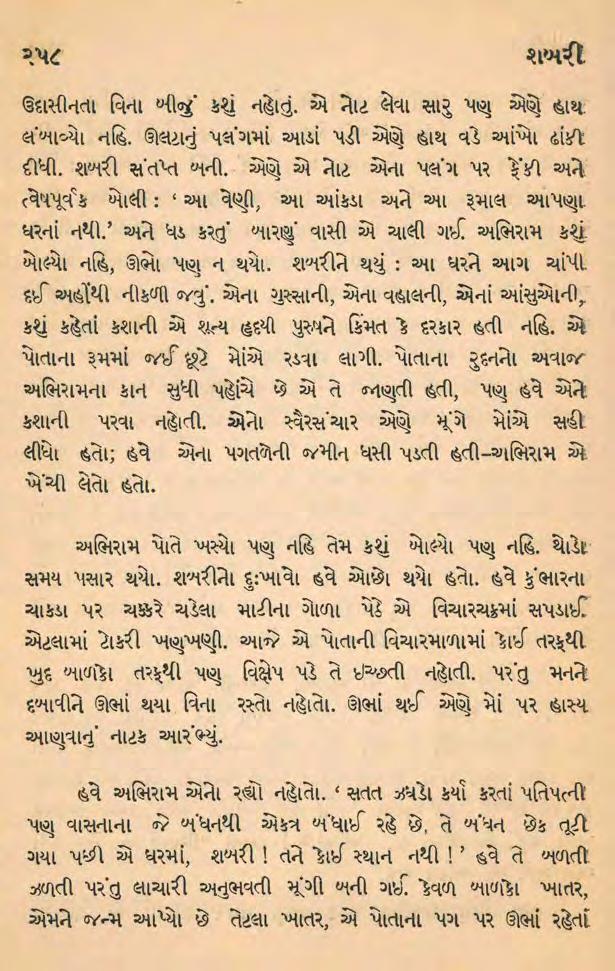 ૨૫૮
શબરી
ઉદાસીનતા વિના બીજું કશું નહોતું. એ નોટ લેવા સારુ પણ એણે હાથ
લંબાવ્યો નહિ. ઊલટાનું પલંગમાં આડાં પડી એણે હાથ વડે આંખો ઢાંકી
દીધી. શબરી સંતપ્ત બની. એણે એ નોટ એના પલંગ પર ફેંકી અને
ત્વેષપૂર્વક બોલી : ‘ આ વેણી, આ આંકડા અને આ રૂમાલ આપણા
ઘરનાં નથી.’ અને ધડ કરતું બારણું વાસી એ ચાલી ગઈ. અભિરામ કશું
બોલ્યો નહિ, ઊભો પણ ન થયો. શબરીને થયું : આ ઘરને આગ ચાંપી
દઈ અહીંથી નીકળી જવું. એના ગુસ્સાની, એના વહાલની, એનાં આંસુઓની,
કશું કહેતાં કશાની એ શૂન્ય હૃદયી પુરુષને કિંમત કે દરકાર હતી નહિ. એ
પોતાના રૂમમાં જઈ છૂટે મોંએ રડવા લાગી. પોતાના રુદનનો અવાજ
અભિરામના કાન સુધી પહોંચે છે એ તે જાણતી હતી, પણ હવે એને
કશાની પરવા નહોતી. એનો સ્વૈરસંચાર એણે મૂંગે મોંએ સહી
લીધો હતો; હવે એના પગતળેની જમીન ધસી પડતી હતી–અભિરામ એ
ખેંચી લેતો હતો.
અભિરામ પોતે ખસ્યો પણ નહિ તેમ કશું બોલ્યો પણ નહિ. થોડો
સમય પસાર થયો. શબરીનો દુઃખાવો હવે ઓછો થયો હતો. હવે કુંભારના
ચાકડા પર ચક્કરે ચડેલા માટીના ગોળા પેઠે એ વિચારચક્રમાં સપડાઈ.
એટલામાં ટોકરી ખણખણી. આજે એ પોતાની વિચારમાળામાં કોઈ તરફથી
ખુદ બાળકો તરફથી પણ વિક્ષેપ પડે તે ઇચ્છતી નહોતી. પરંતુ મનને
દબાવીને ઊભાં થયા વિના રસ્તો નહોતો. ઊભાં થઈ એણે મોં પર હાસ્ય
આણવાનું નાટક આરંભ્યું.
હવે અભિરામ એનો રહ્યો નહોતો. ‘ સતત ઝઘડો કર્યા કરતાં પતિપત્ની
પણ વાસનાના જે બંધનથી એકત્ર બંધાઈ રહે છે, તે બંધન છેક તૂટી
ગયા પછી એ ઘરમાં, શબરી ! તને કોઈ સ્થાન નથી ! ’ હવે તે બળતી
ઝળતી પરંતુ લાચારી અનુભવતી મૂંગી બની ગઈ. કેવળ બાળકો ખાતર,
એમને જન્મ આપ્યો છે તેટલા ખાતર, એ પોતાના પગ પર ઊભાં રહેતાં